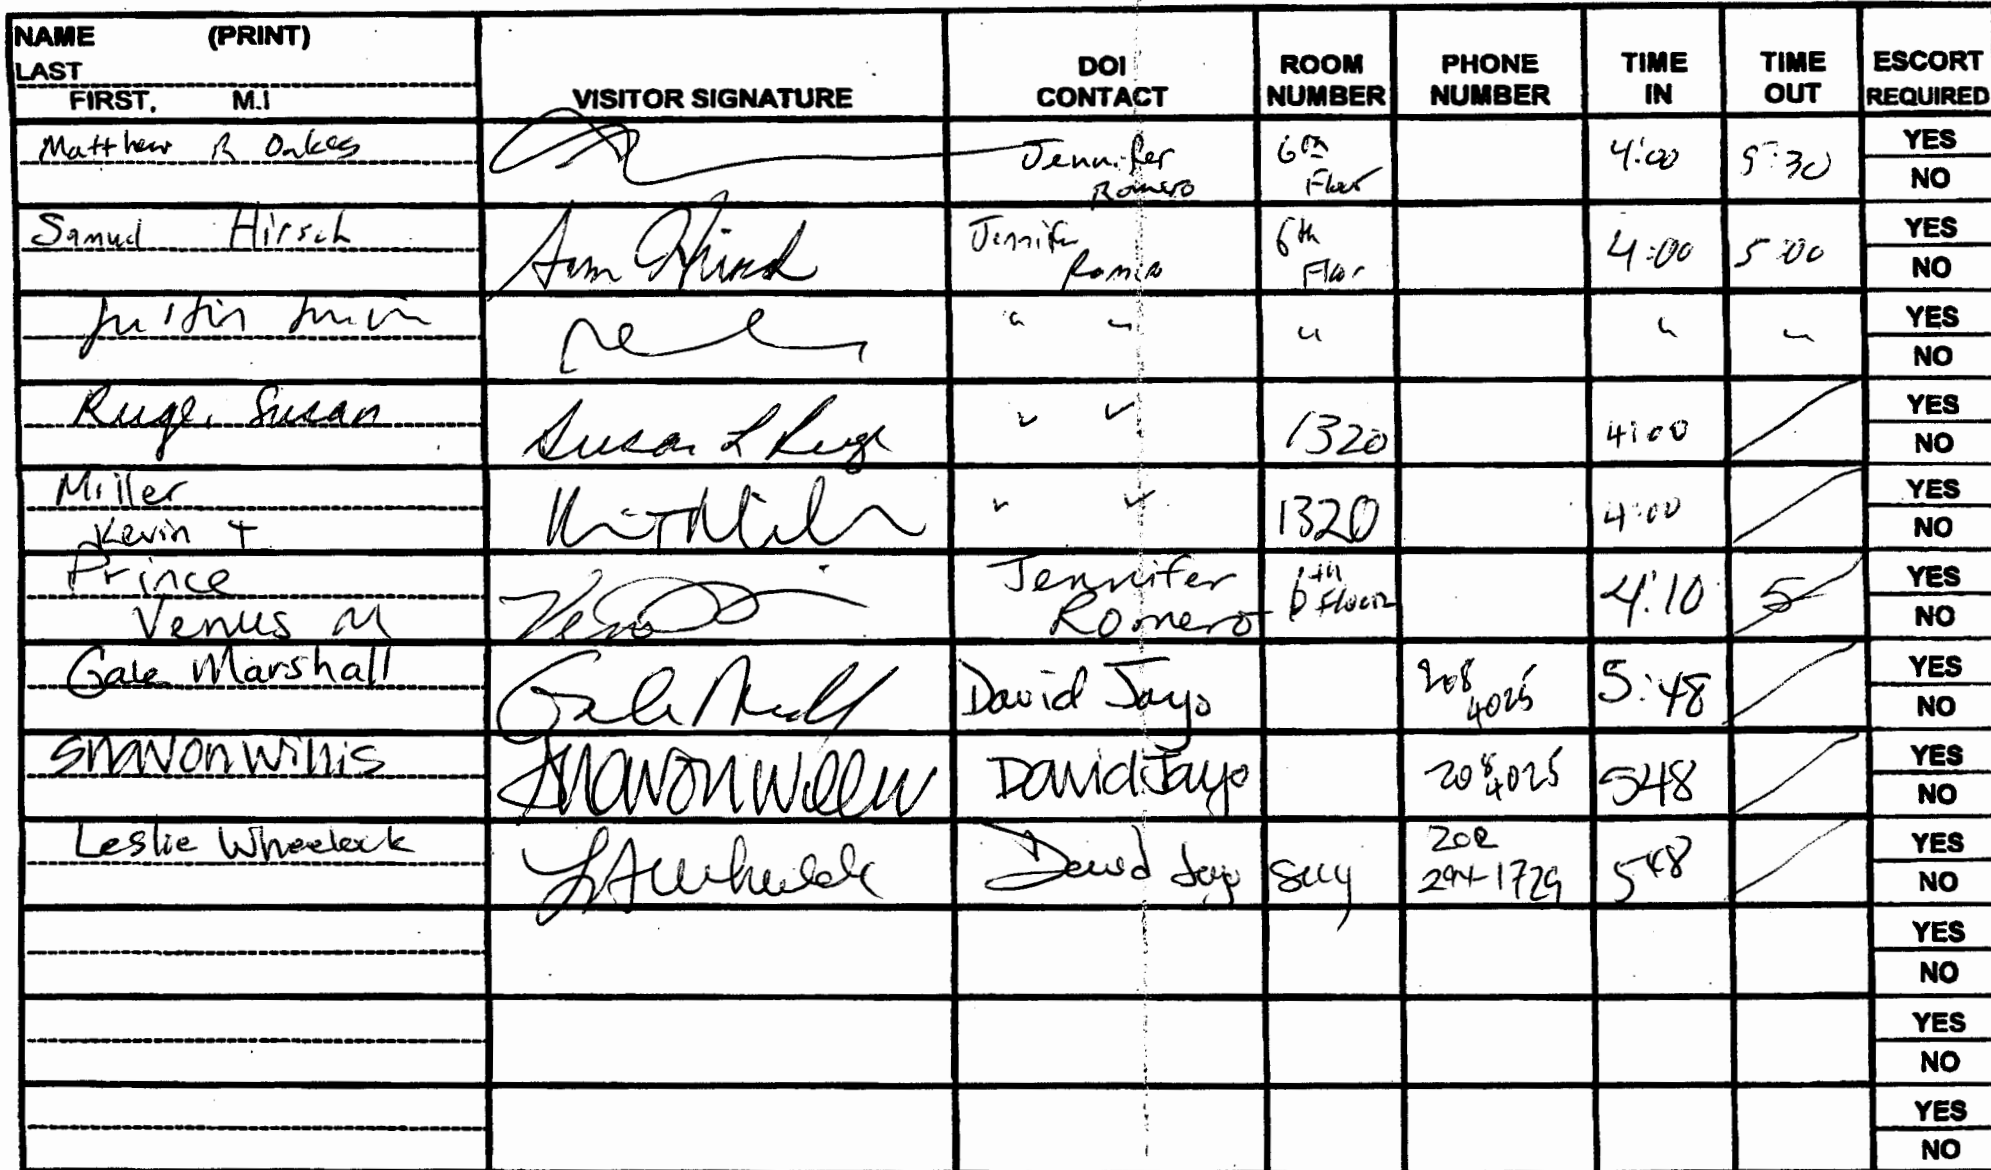 NAME (PRINT)
LAST
FIRST, M.I
VISITOR SIGNATURE
DOI CONTACT
ROOM NUMBER
PHONE NUMBER
TIME IN
TIME OUT
ESCORT REQUIRED
Matthew R Oakes Jennifer Romero 6th Floor 4:00 5:30 YES NO
Samuel Hirsch Sam Hirsch Jennifer Romero 6th Floor 4:00 5:00 YES NO
Justin " " " " " YES NO
Ruge, Susan Susan L Ruge " " 1320 4:00 YES NO
Miller
Kevin T " " 1320 4:00 YES NO
Prince
Venus M Jennifer Romero 6th Floor 4:10 5 YES NO
Gale Marshall David Jayo 208 4025 5:48 YES NO
Sharon Willis Sharon Willis David Jayo 208 4025 548 YES NO
Leslie Wheelock David Jayo 202 294-1729 548 YES NO
YES NO
YES NO
YES NO